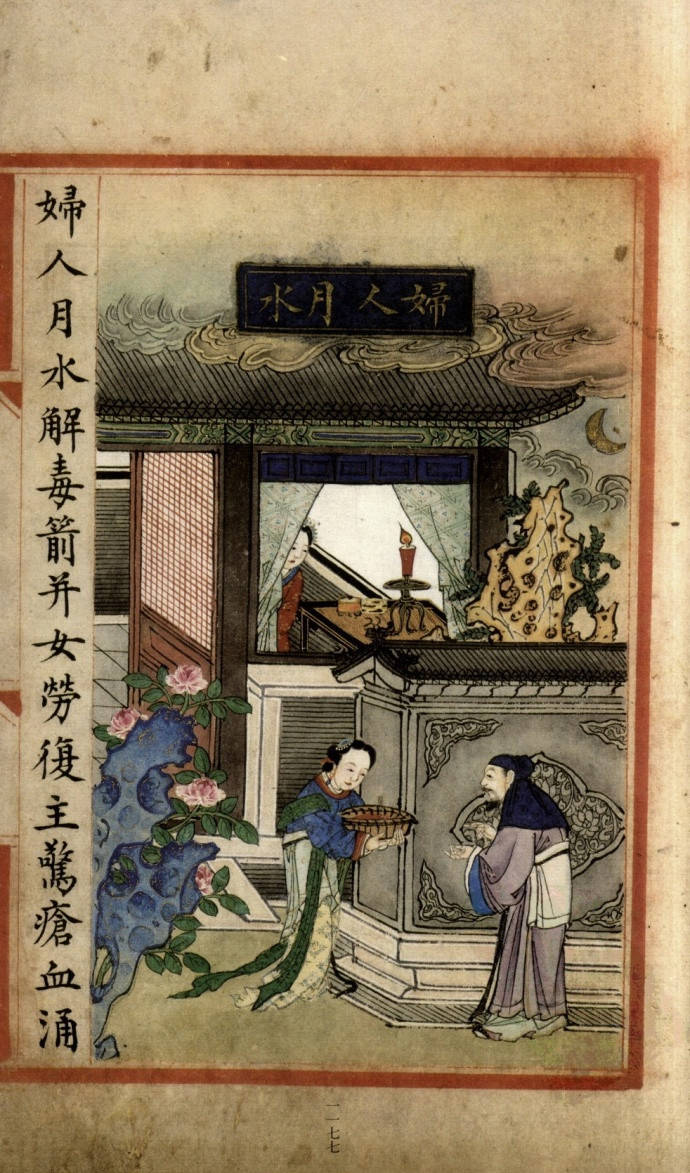 婦人月水
婦人月水解毒箭并女勞復主驚瘡血涌